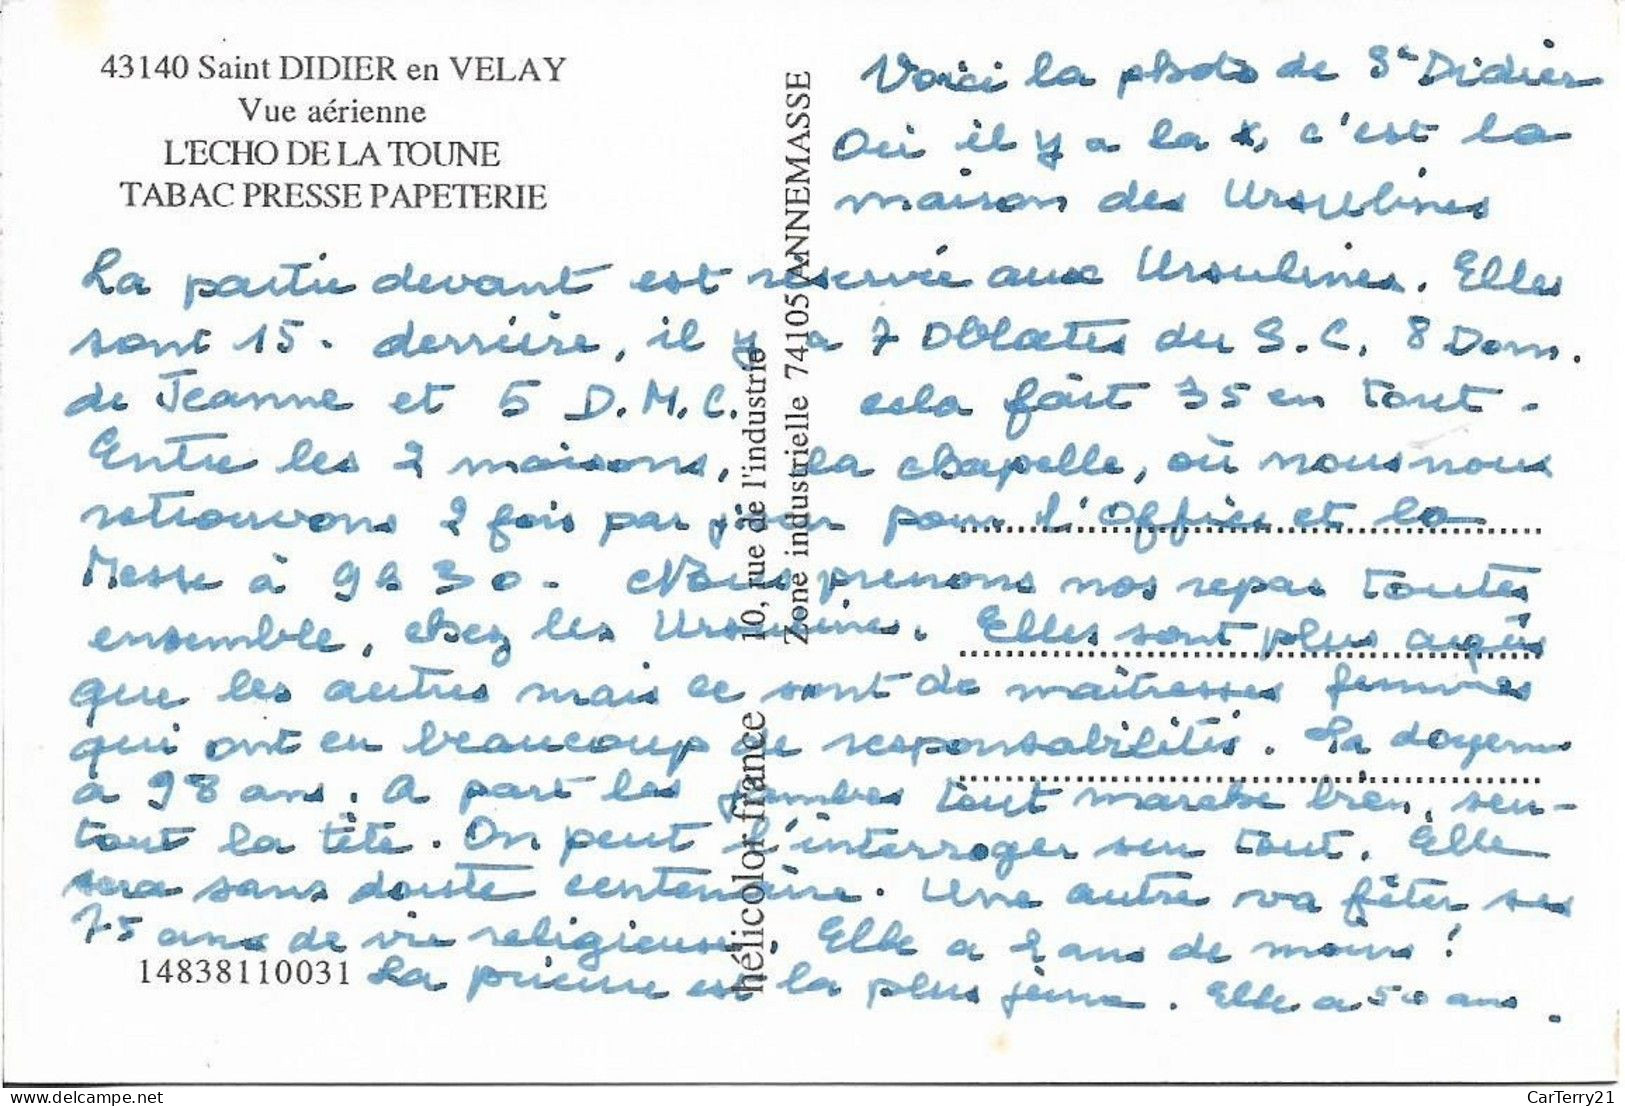 43140 Saint DIDIER en VELAY
Vue aérienne
L'ECHO DE LA TOUNE
TABAC PRESSE PAPETERIE
Voici la photo de St Didier
Où il y a la x, c'est la
maison des Ursulines
La partie devant est réservée aux Ursulines. Elles
sont 15. derrière, il y a 7 Oblates du S.C, 8 Dom.
de Jeanne et 5 D.M.C. cela fait 35 en tout.
Entre les 2 maisons, la chapelle, où nous nous
retrouvons 2 fois par jour pour l'Office et la
Messe à 9h30. Nous prenons nos repas toutes
ensemble, chez les Ursulines. Elles sont plus agées
que les autres mais ce sont de maîtresses femmes
qui ont eu beaucoup de responsabilités. La doyenne
a 98 ans. A part les jambes tout marche bien, sur-
tout la tête. On peut l'interroger sur tout. Elle
sera sans doute centenaire. Une autre va fêter ses
75 ans de vie religieuse. Elle a 2 ans de moins !
La prieure est la plus jeune. Elle a 50 ans.
14838110031
hélicolor france 10, rue de l'industrie
Zone industrielle 74105 ANNEMASSE
CarTerry21